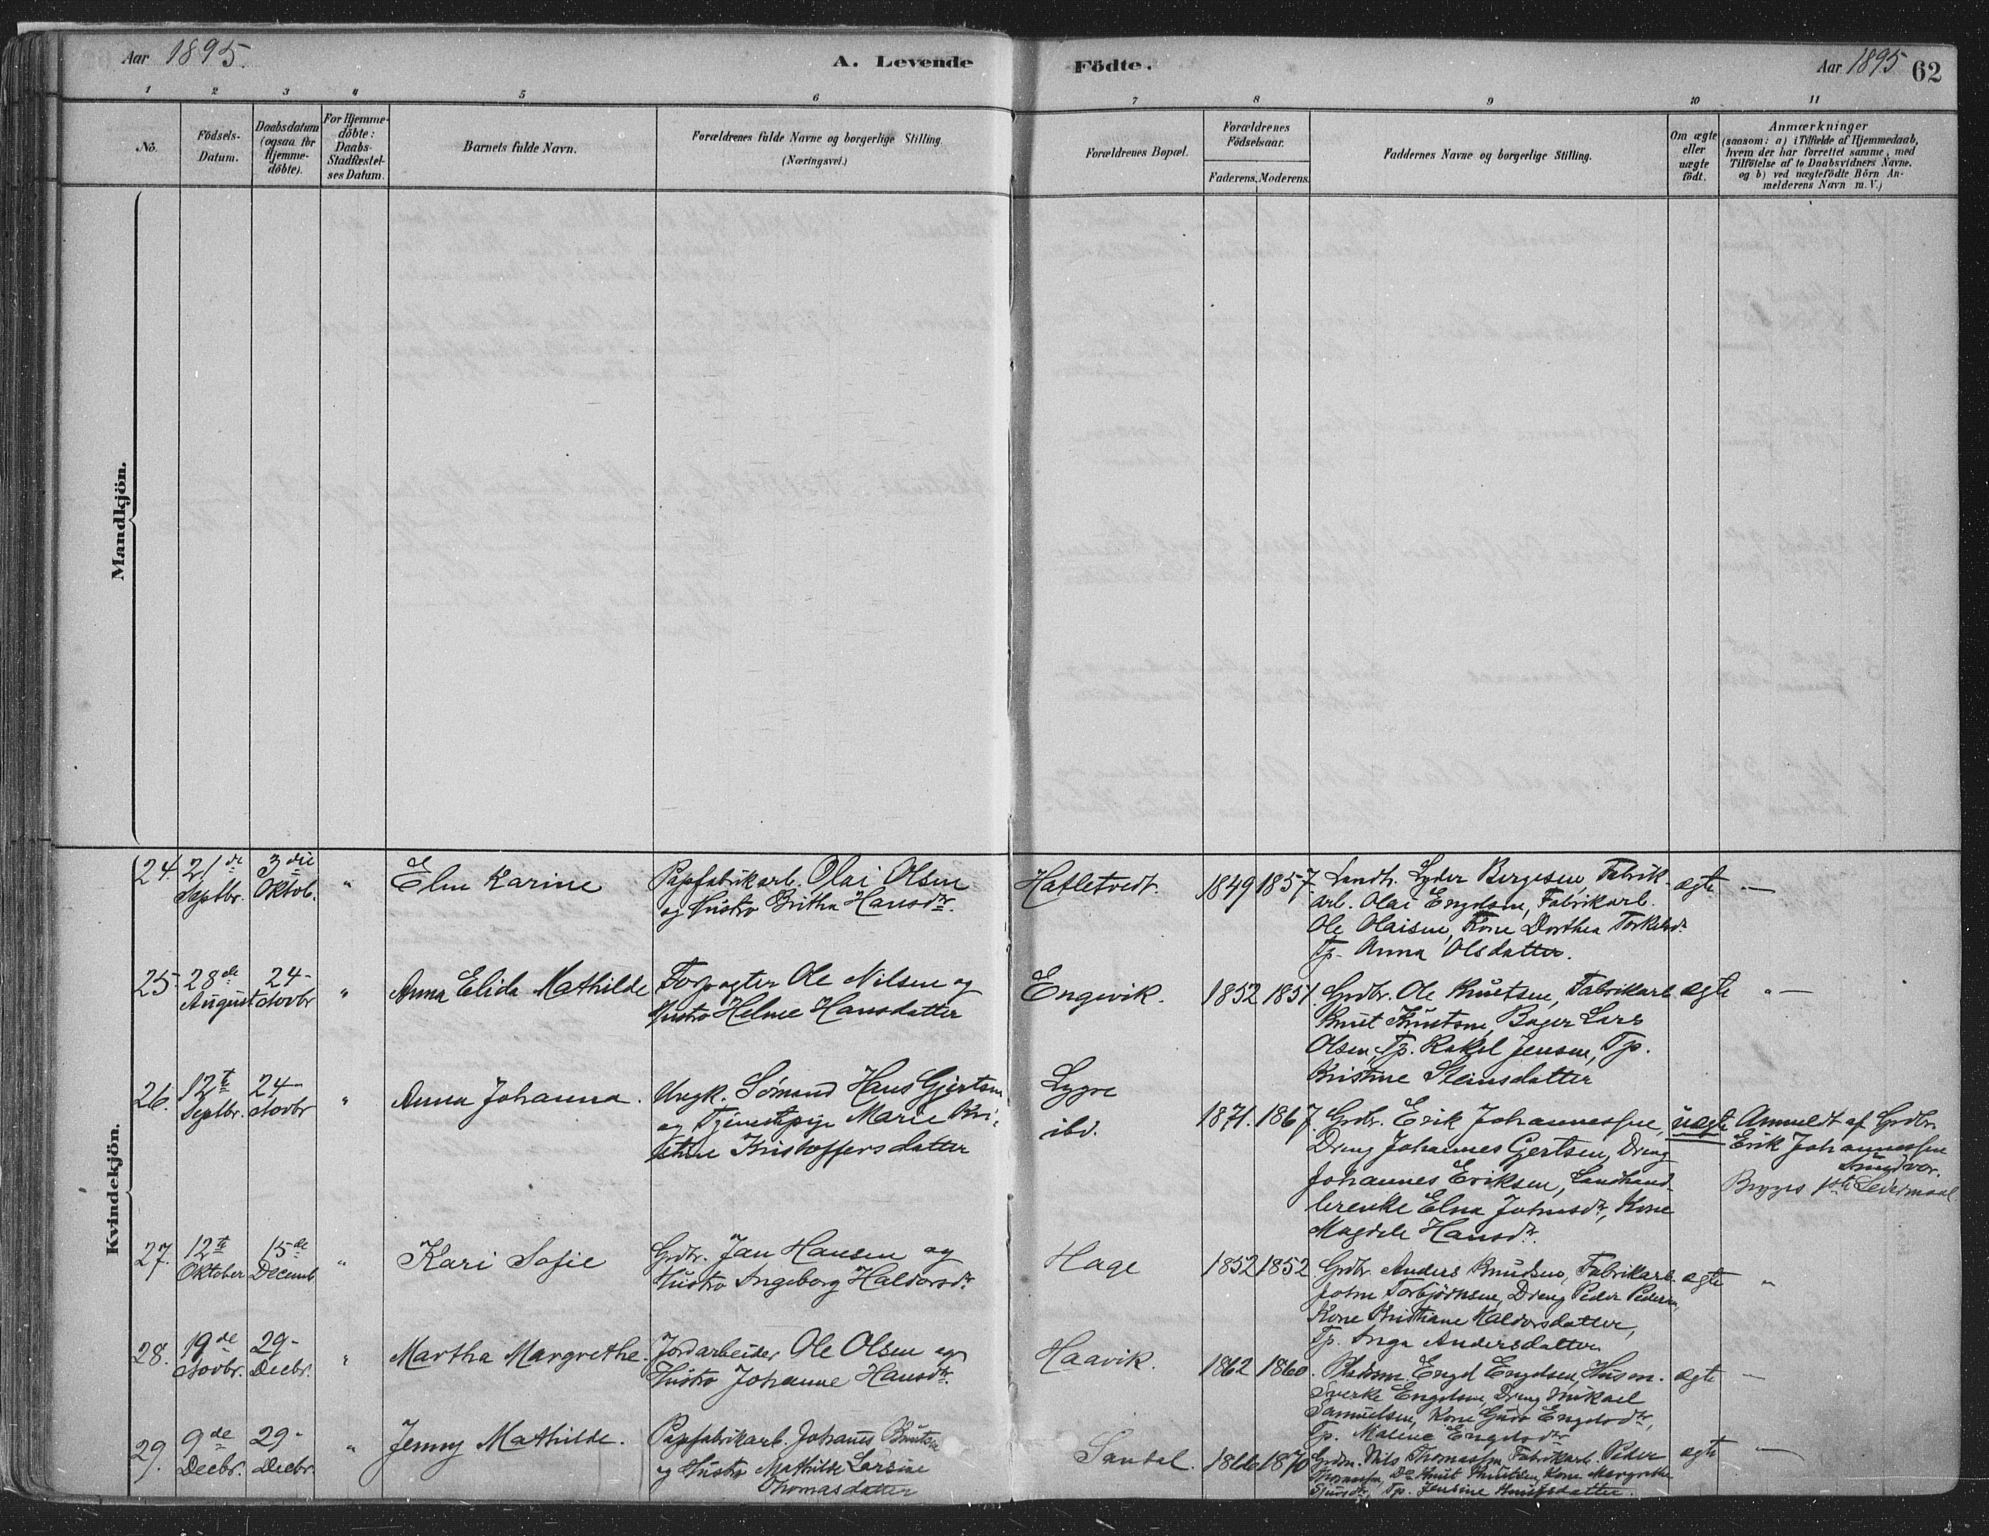 Aar 1895.
A. Levende
Födte.
Aar 1895
62
1 2 3 4 5 6 7 8 9 10 11
No.
Födsels-
Datum.
Daabsdatum
(ogsaa for
Hjemme-
döbte).
For Hjemme-
döbte:
Daabs-
Stadfæstel-
ses Datum.
Barnets fulde Navn.
Forældrenes fulde Navne og borgerlige Stilling.
(Næringsvei.)
Forældrenes Bopæl.
Forældrenes
Födselsaar.
Faderens. Moderens.
Faddernes Navne og borgerlige Stilling.
Om ægte
eller
uægte
födt.
Anmærkninger
(saasom: a) i Tilfælde af Hjemmedaab,
hvem der har forrettet samme, med
Tilföielse af to Daabsvidners Navne,
og b) ved uægtefödte Börn An-
melderens Navn m. V.)
Mandkjön.
Kvindekjön.
24.
21de
Septbr.
3die
Oktob.
"
Karine
Papfabrikarb. Olai Olsen
og Hustro Britha Hansdtr.
Hafletvedt.
1849
1857.
Landh. Lyder Bergesen, Fabrik-
arb. Olai Engelsen, Fabrikarb.
Ole Olaisen, Kone Dorthea Torkelsdr.
Tp. Anna Olsdatter.
ægte
—
25
28de
August
24-
Novbr
"
Anna Elida Mathilde
Forpagter Ole Nilsen og
Hustro Helene Hansdatter
Engevik.
1852
1851
Grdbr. Ole Knutsen, Fabrikarb
Knut Knutsen, Bager Lars
Olsen, Tp. Rakel Jensen, Tp.
Kristine Steinsdatter
ægte
" —
26.
12te
Septbr.
24-
Novbr
"
Anna Johanna.
Ungk. Sömand Hans Gjertsen
og Tjenestepige Marie Kri-
stine Kristoffersdatter
Lygre
ibd.
1871.
1867.
Grdbr. Erik Johannessen,
Dreng Johannes Gertsen, Dreng
Johannes Eriksen, Landhand-
lerenke Elna Johnsdr, Kone
Magdele Hansdr.
uægte
Anmeldt af Grdbr.
Erik Johannessen
1ste Leiermaal
27.
12te
Oktober
15de
Decemb.
"
Kari Sofie
Grdbr. Jan Hansen og
Hustro Ingeborg Haldorsdr.
Hage
1852
1852.
Grdbr Anders Knudsen, Fabrikarb.
John Torbjørnsen, Dreng Peder Pedersen,
Kone Kristiane Haldorsdatter,
Tp. Inga Andersdatter
ægte
"
28.
19de
Novbr.
29-
Decbr.
"
Martha Margrethe
Jordarbeider Ole Olsen og
Hustro Johanne Hansdtr.
Haavik.
1862
1860.
Engel Engelsen, Husm.
Sverke Engelsen, Dreng Mikael
Samuelsen, Kone Guro Engelsdtr,
Tp. Malene Engelsdtr
ægte
—
29.
9de
Decbr.
29-
Decbr.
"
Jenny Mathilde.
Papfabrikarb. Johannes Knutsen
og Hustro Mathilde Larsine
Thomasdatter
Sandal.
1870
Nils Thomassen, Fabrikarb. Peder
Thomassen, Do Knut Knutsen, Kone Margrethe
Sjursdr, Tp. Jensine Knutsdatter.
ægte
—